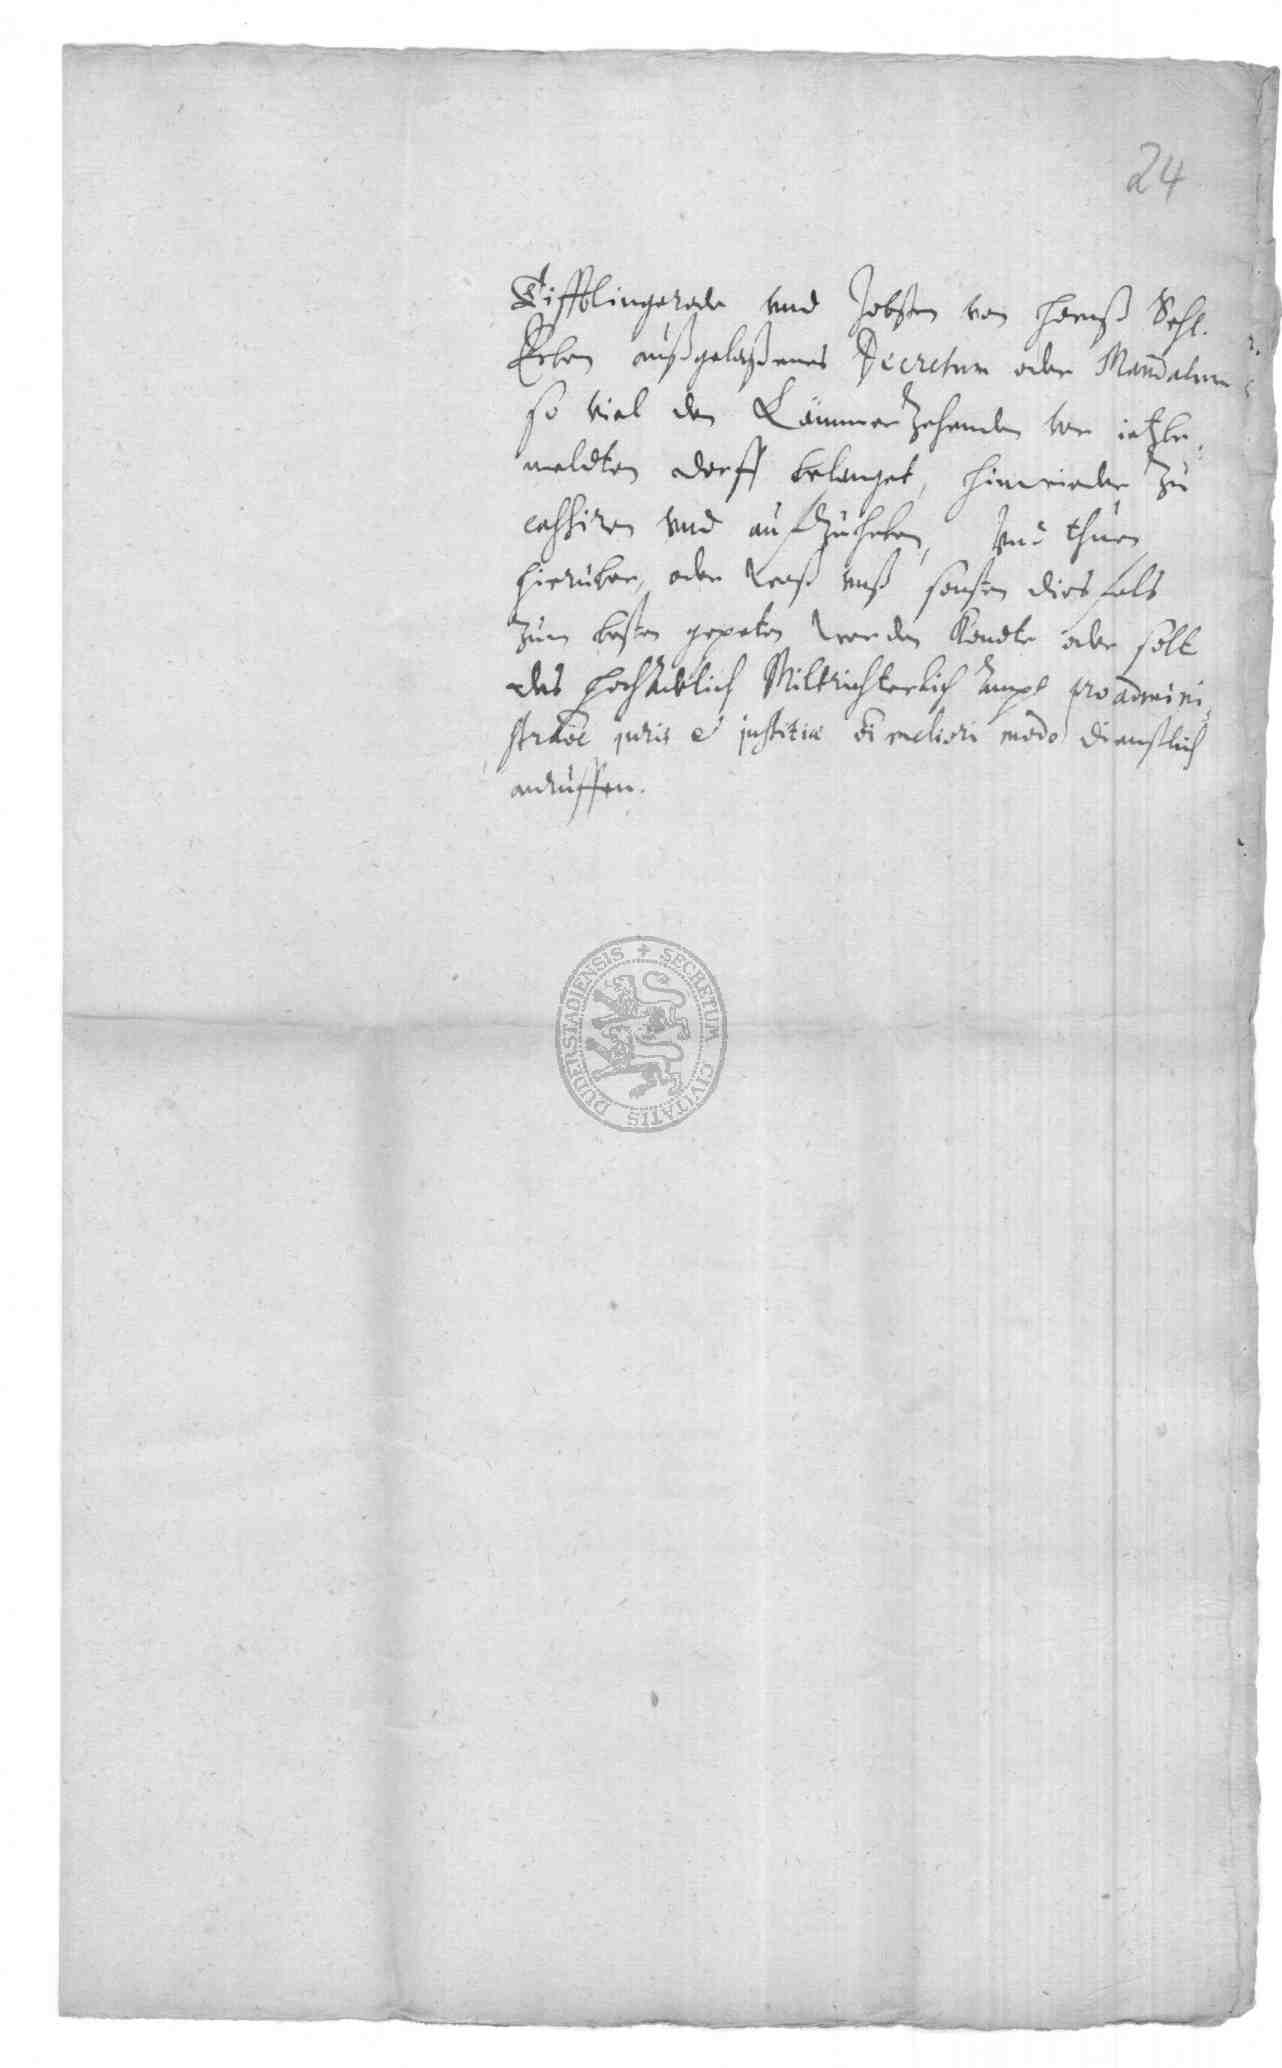 24
Tifftlingerode vnd Jobsten von Hanß Sehl.
Erben außgelaßenes Decretum oder Mandatum
so viel den Lämmer Zehenden vor jetzbe,
meldten dorff belanget, hinwieder zu
cassiren vnd auffzuheben, Vnd thuen
hierüber, oder waß unß sonsten diesfals
zum besten gepeten werden kondte oder solt
das hochAdelich Miltrichterlich Ampt pro admini,
straoe juris et justitiæ oi meliori modo dienstlich
anruffen.
SECRETUM CIVITATIS DUDERSTADIENSIS